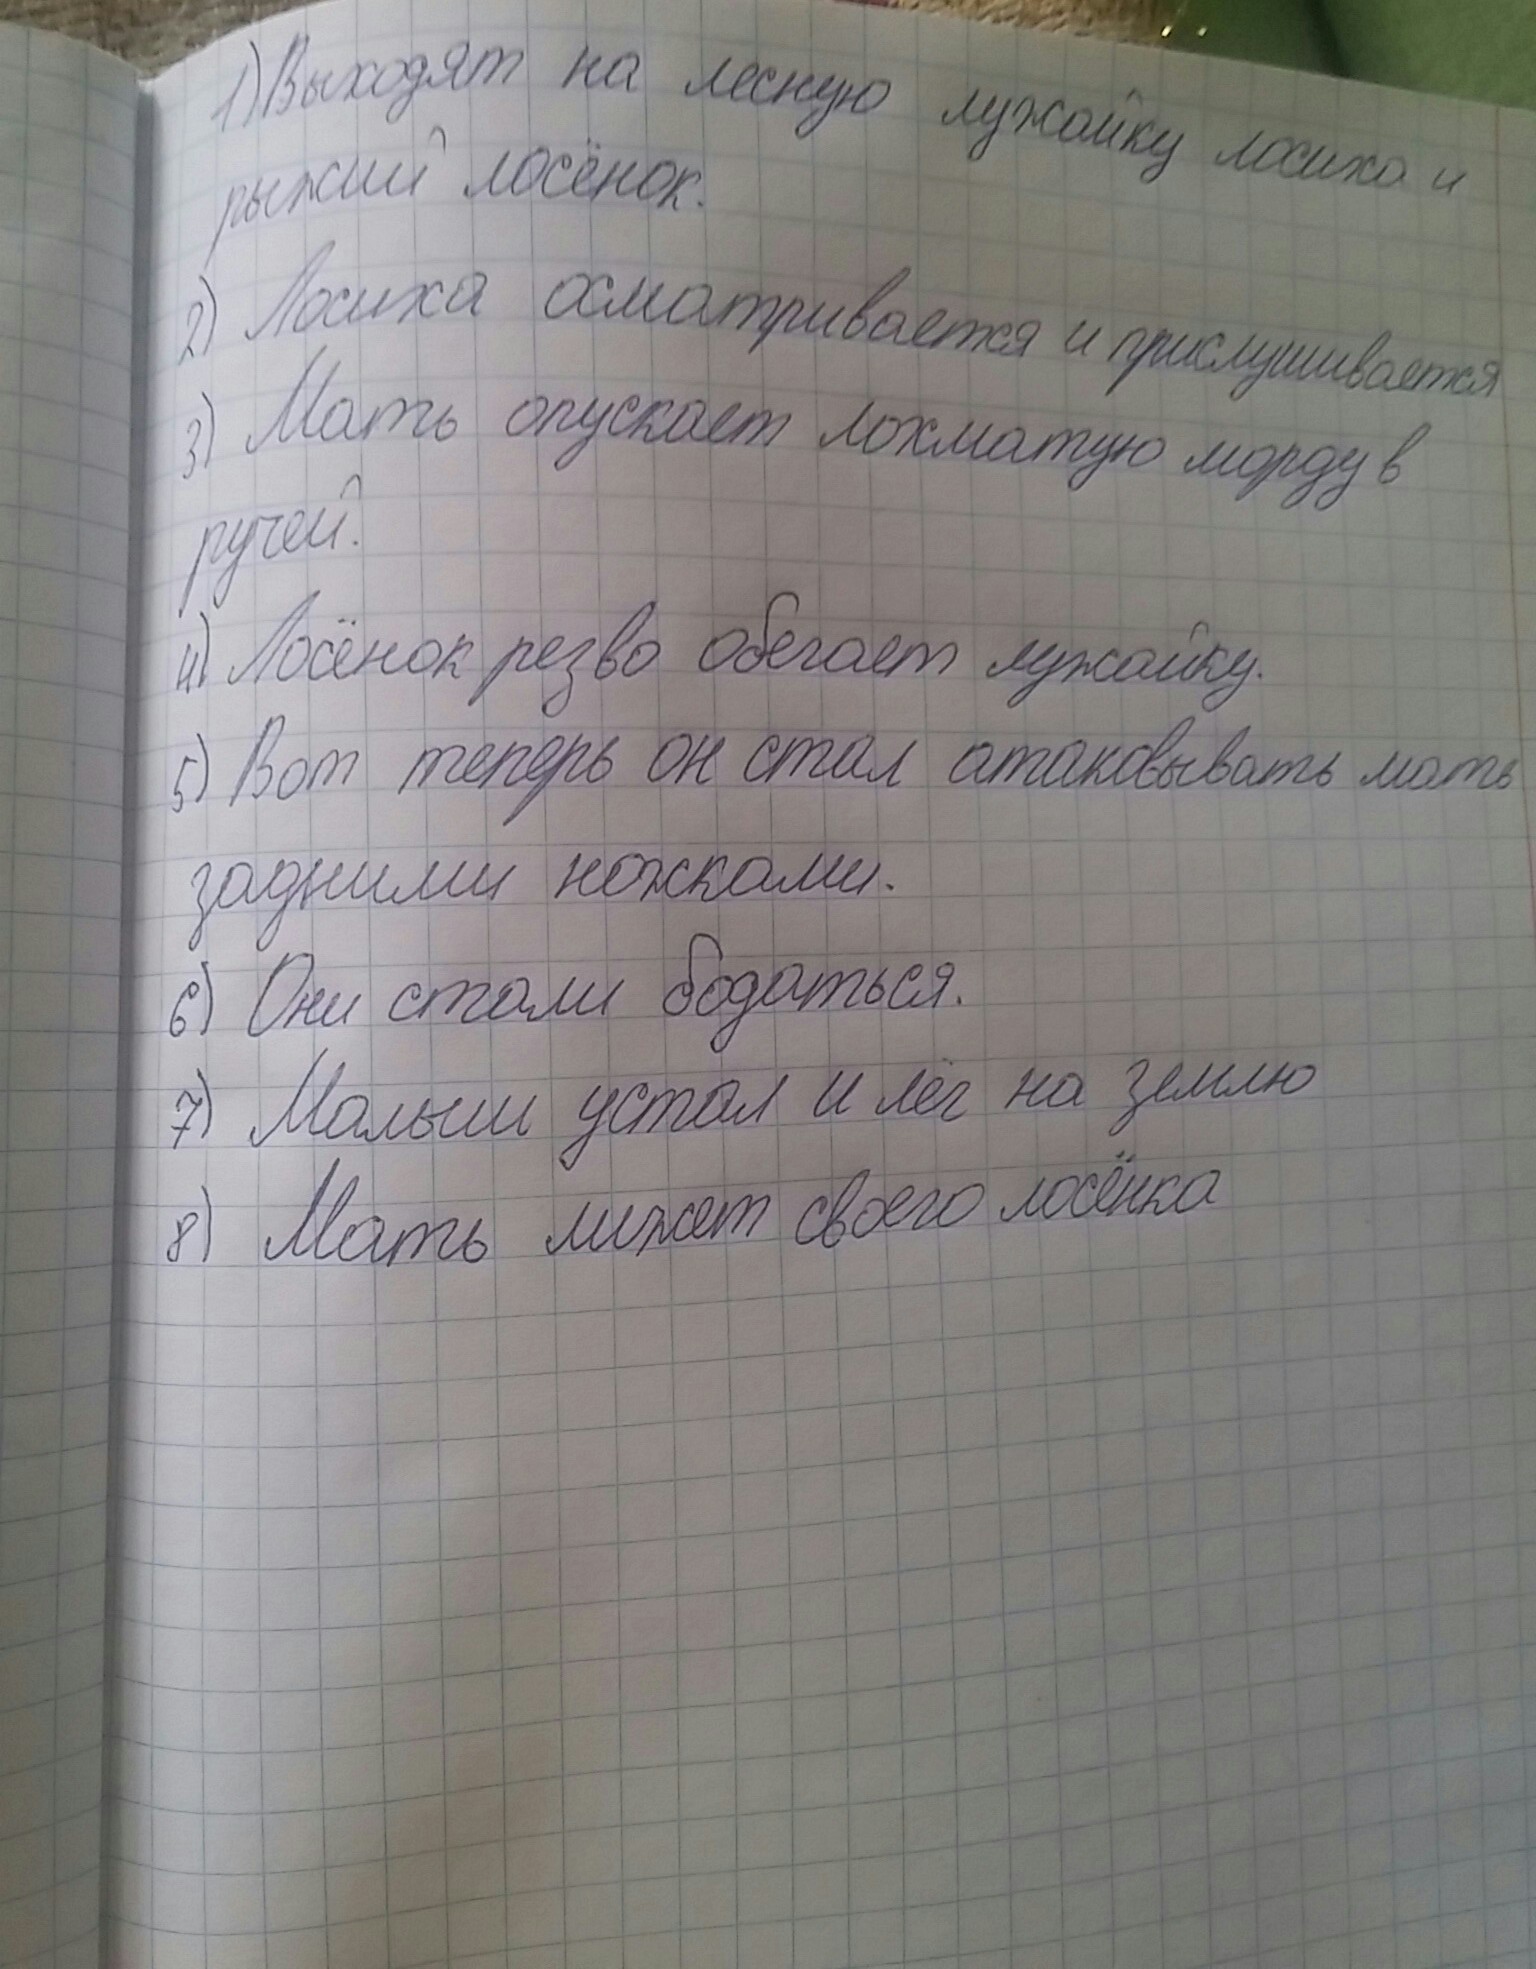 1) Выходят на лесную лужайку лосиха и
рыжий лосёнок.
2) Лосиха осматривается и прислушивается
3) Мать опускает лохматую морду в
ручей.
4) Лосёнок резво обегает лужайку.
5) Вот теперь он стал атаковывать мать
задними ножками.
6) Они стали бодаться.
7) Малыш устал и лёг на землю
8) Мать лижет своего лосёнка